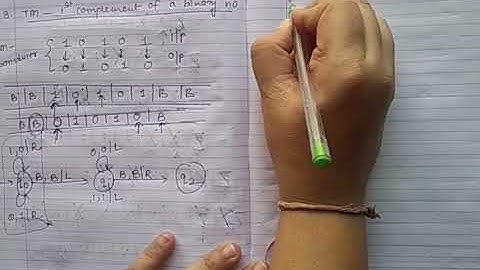 3. TM - 1st complement of a binary no
{ 1 0 1 0 1 } i|p
↓ ↓ ↓ ↓ ↓
0 1 0 1 0 o|p
B | B | 1 | 0 | 1 | 0 | 1 | B | B
B | B | 0 | 1 | 0 | 1 | 0 | B
1,0|R 0,0|L
q0 B,B|L q1 B,B|R q2
0,1|R 1,1|L